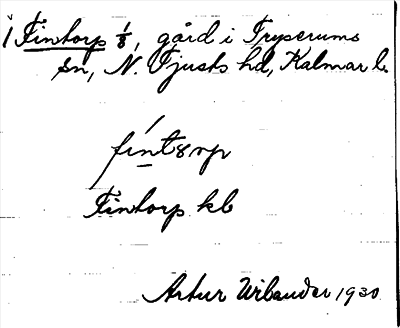 Fintorp 1/8, gård i Tryserums
sn, N. Tjusts hd, Kalmar l.
Fintorp kb
Artur Wilander 1930